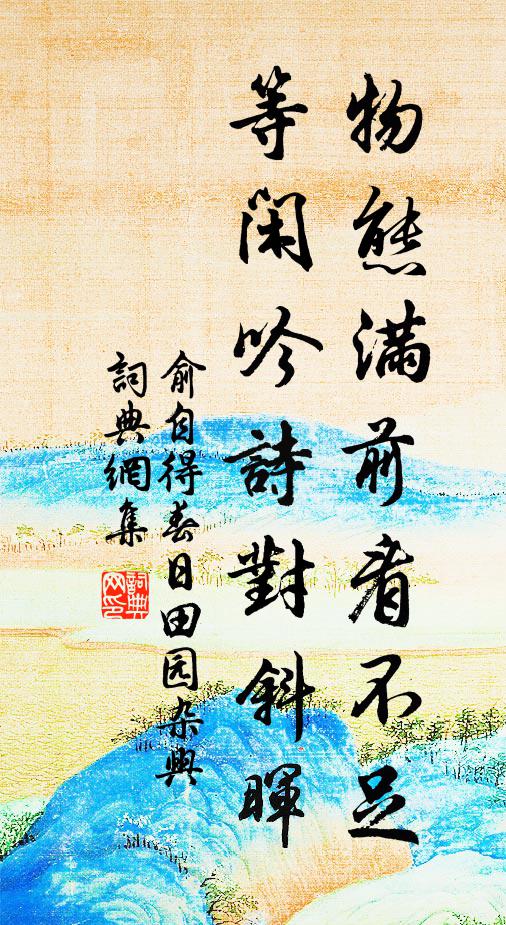 物態滿前看不足
等閑吟詩對斜暉
俞自得春日田园杂興
詞典網集
詞典
网印